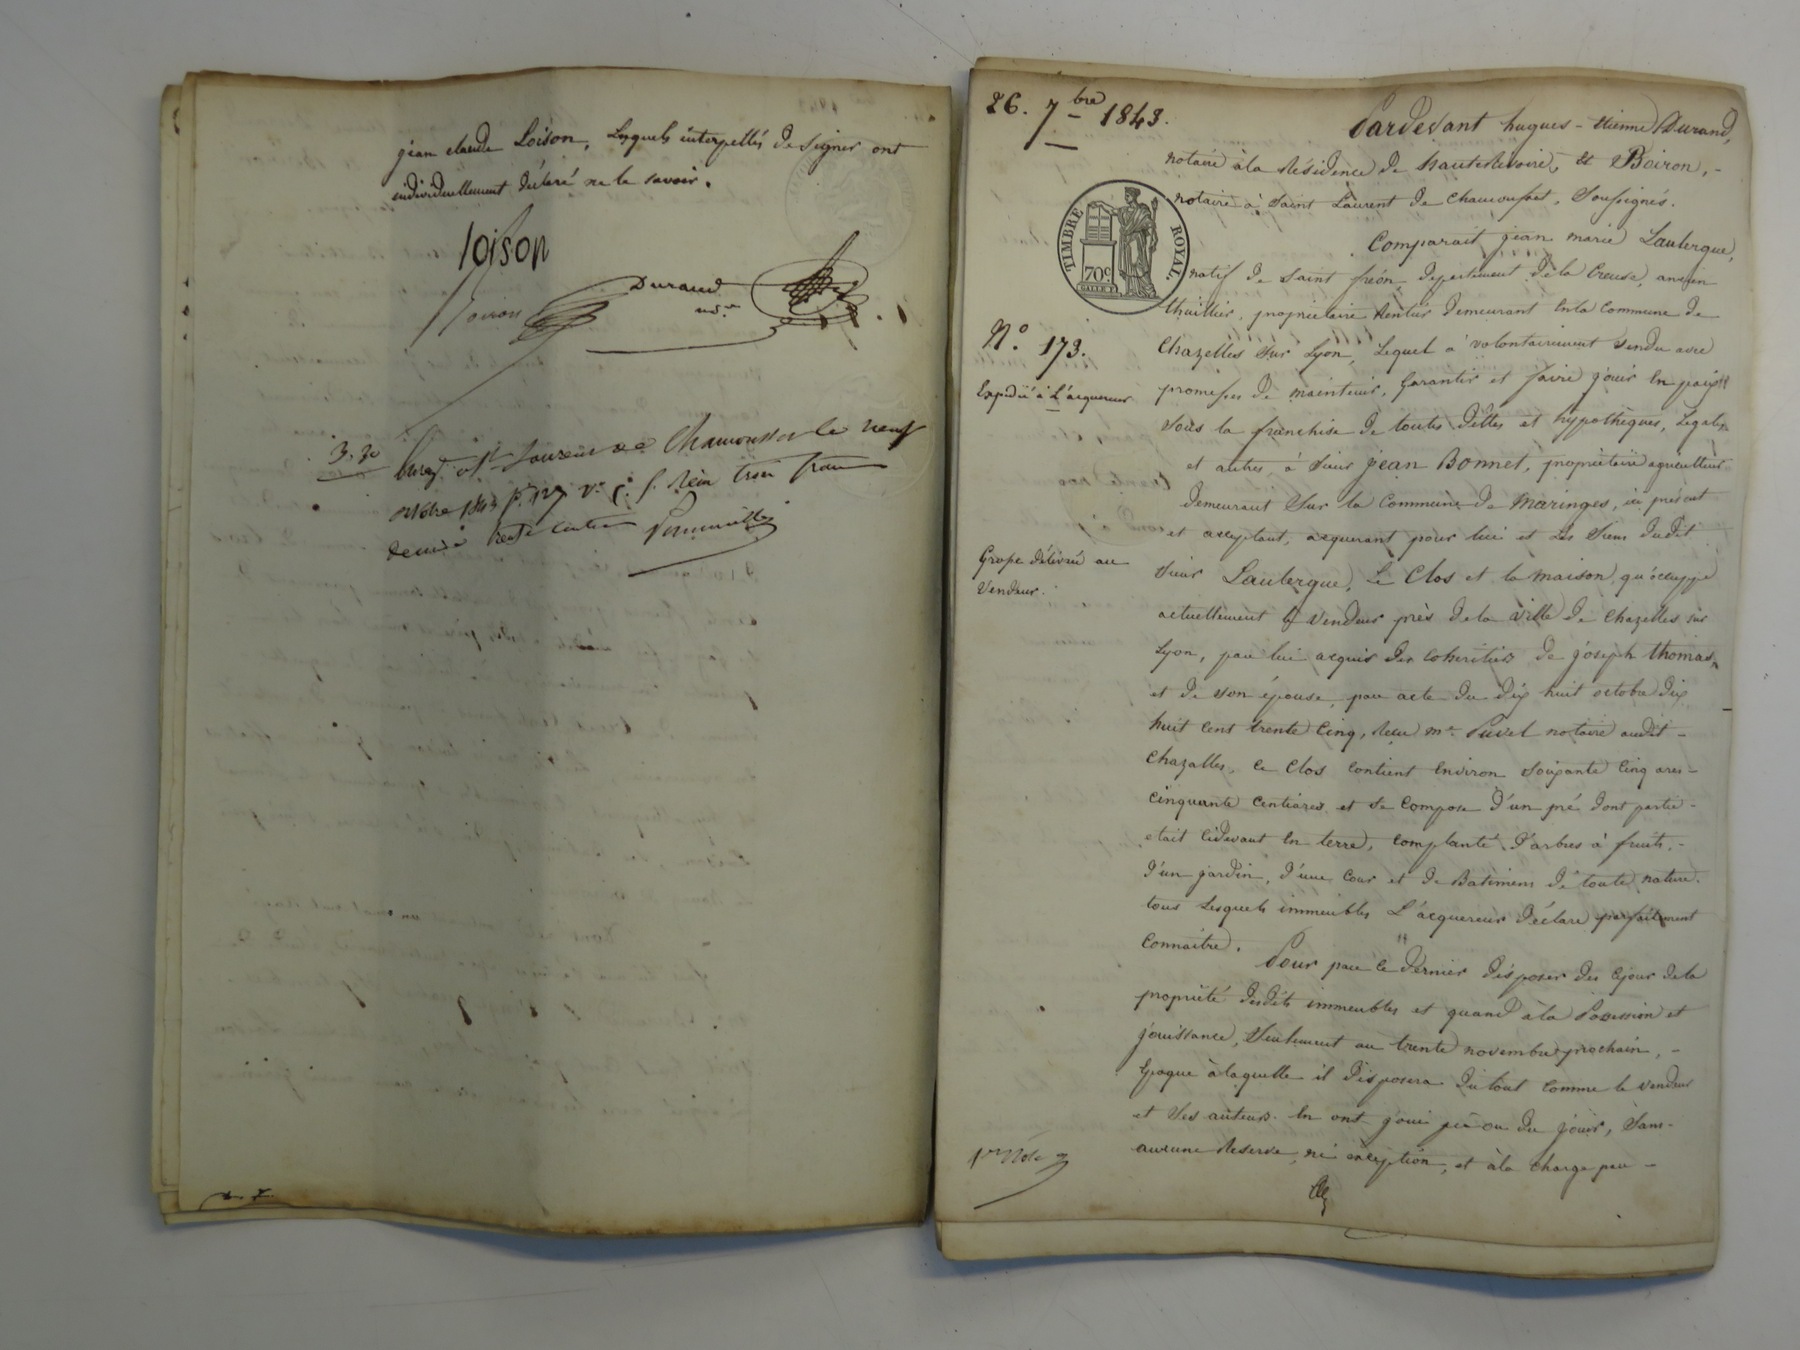 jean claude Loison, Lesquels interpellés de signer ont
individuellement déclaré ne le savoir.
loison
Boiron
Durand
nre.
3. 30
Enreg. à St Laurent de Chamousset le neuf
octobre 1843 fo 127 vo c. 5. Reçu trois francs
decime trente centimes
26. 7bre 1843.
Pardevant hugues-étienne Durand,
notaire à la Résidence de hauterivoire, & Boiron,-
notaire à Saint Laurent de Chamousset, Soussignés.
TIMBRE ROYAL.
70c
Comparait jean marie Laulergue,
natif de Saint fréon, departement de la Creuse, ancien
thuillier, propriétaire Rentier demeurant en la Commune de
No. 173.
Chazelles sur Lyon, Lequel a volontairement vendu avec
Expédié à L'acquereur
promesses de maintenir, garantir et faire jouir en paix
sous la franchise de toutes dettes et hypothèques, Légales
et autres, à Sieur jean Bonnet, propriétaire agriculteur
demeurant Sur la Commune de Maringes, ici présent
et acceptant, acquerant pour lui et les Siens dudit
Grosse délivrée au
Vendeur.
Sieur Laulergue, Le Clos et la maison, qu'occupe
actuellement le vendeur près de la ville de Chazelles sur
Lyon, par lui acquis des coheritiers de joseph thomas,
et de son épouse, par acte du dix huit octobre dix
huit cent trente cinq, Reçu me. notaire audit-
Chazelles, ce Clos contient environ soixante cinq ares-
cinquante centiares et se compose d'un pré dont partie-
etait cidevant en terre, complanté d'arbres à fruits,-
d'un jardin, d'une cour et de Batimens de toute nature.
tous Lesquels immeubles L'acquereur déclare parfaitement
Connaitre.
Pour par ce dernier disposer dès cejour de la
propriété desdits immeubles et quand à la Possession et
jouissance, Seulement au trente novembre prochain,-
époque à laquelle il disposera du tout comme le vendeur
et ses auteurs en ont joui pu ou du jouir, Sans-
aucune Réserve, ni exception, et à la charge par-
1er Role